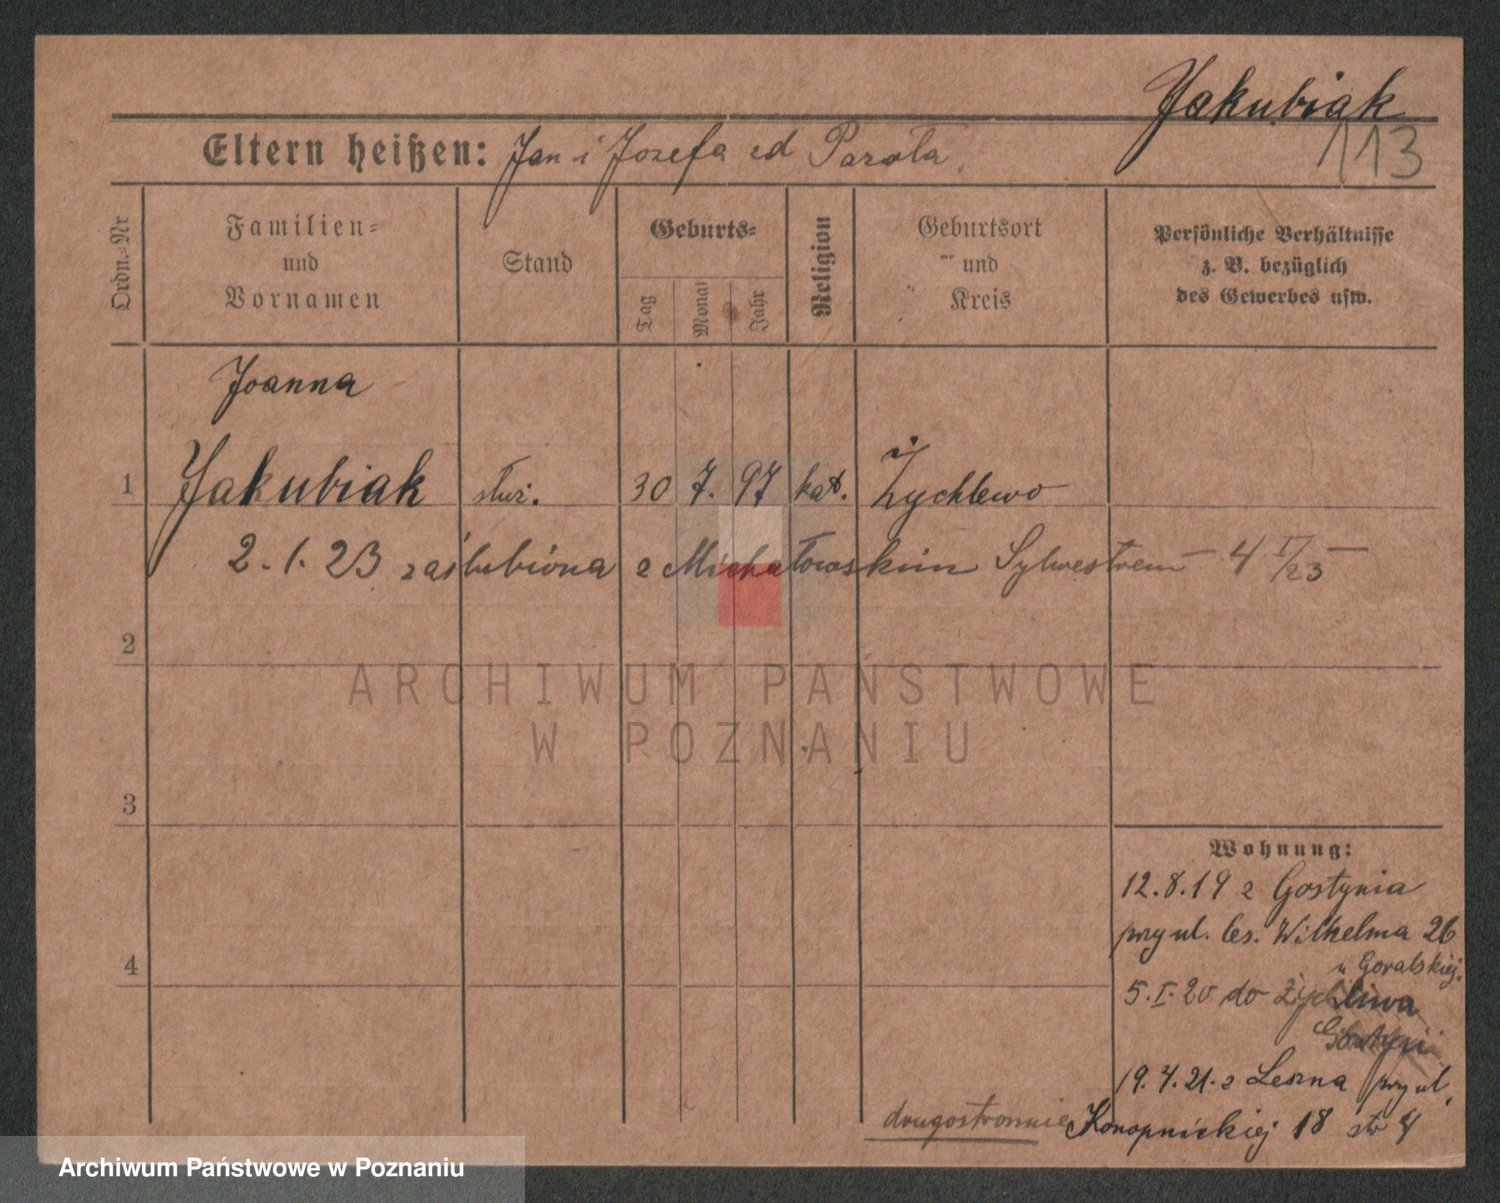 Jakubiak
113
Eltern heißen: Jan i Józefa zd Parola
Ordn.-Nr
Familien-
und
Vornamen
Stand
Geburts-
Tag
Monat
Jahr
Religion
Geburtsort
und
Kreis
Persönliche Verhältnisse
z. B. bezüglich
des Gewerbes usw.
Joanna
1 Jakubiak służ. 30 7. 97 kat. Żychlewo
2.1.23 zaślubiona z Michałowskim Sylwestrem 4 I/23
2
ARCHIWUM PAŃSTWOWE
W POZNANIU
3
Wohnung:
12.8.19 z Gostynia
przy ul. Ces. Wilhelma 26
u Goralskiej.
4
5.I.20 do Żychlewa
19.4.21. z Leszna przy ul.
drugostronnie Konopnickiej 18 str 4
Archiwum Państwowe w Poznaniu